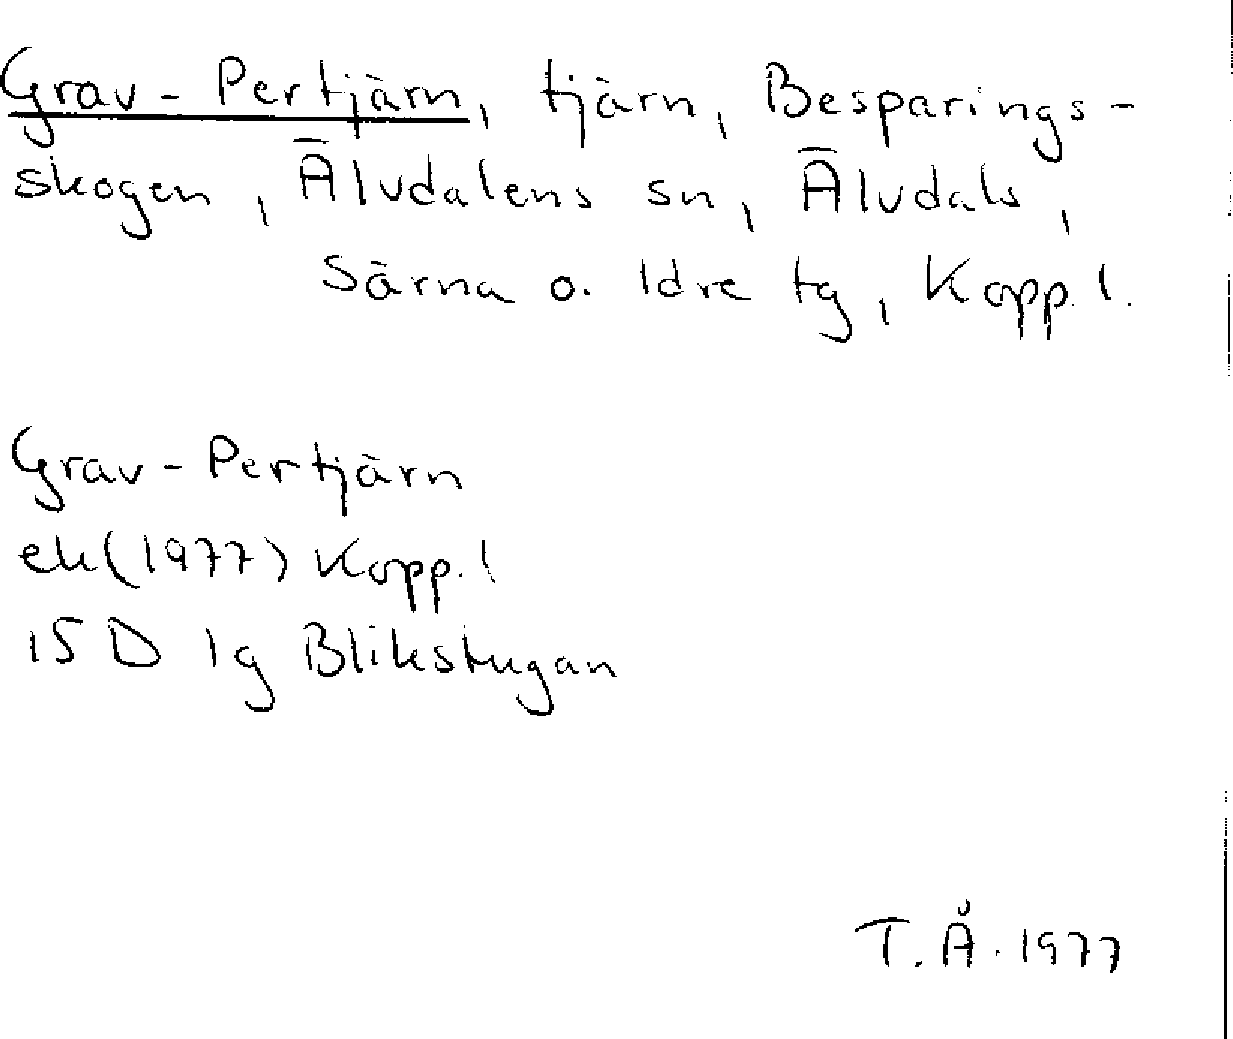 Grav-Pertjärn, tjärn, Besparings-
skogen, Älvdalens sn, Älvdals,
Särna o. Idre tg, Kopp. l.
Grav-Pertjärn
ek (1977) Kopp. l
15 D 1g Blikstugan
T. Å. 1977